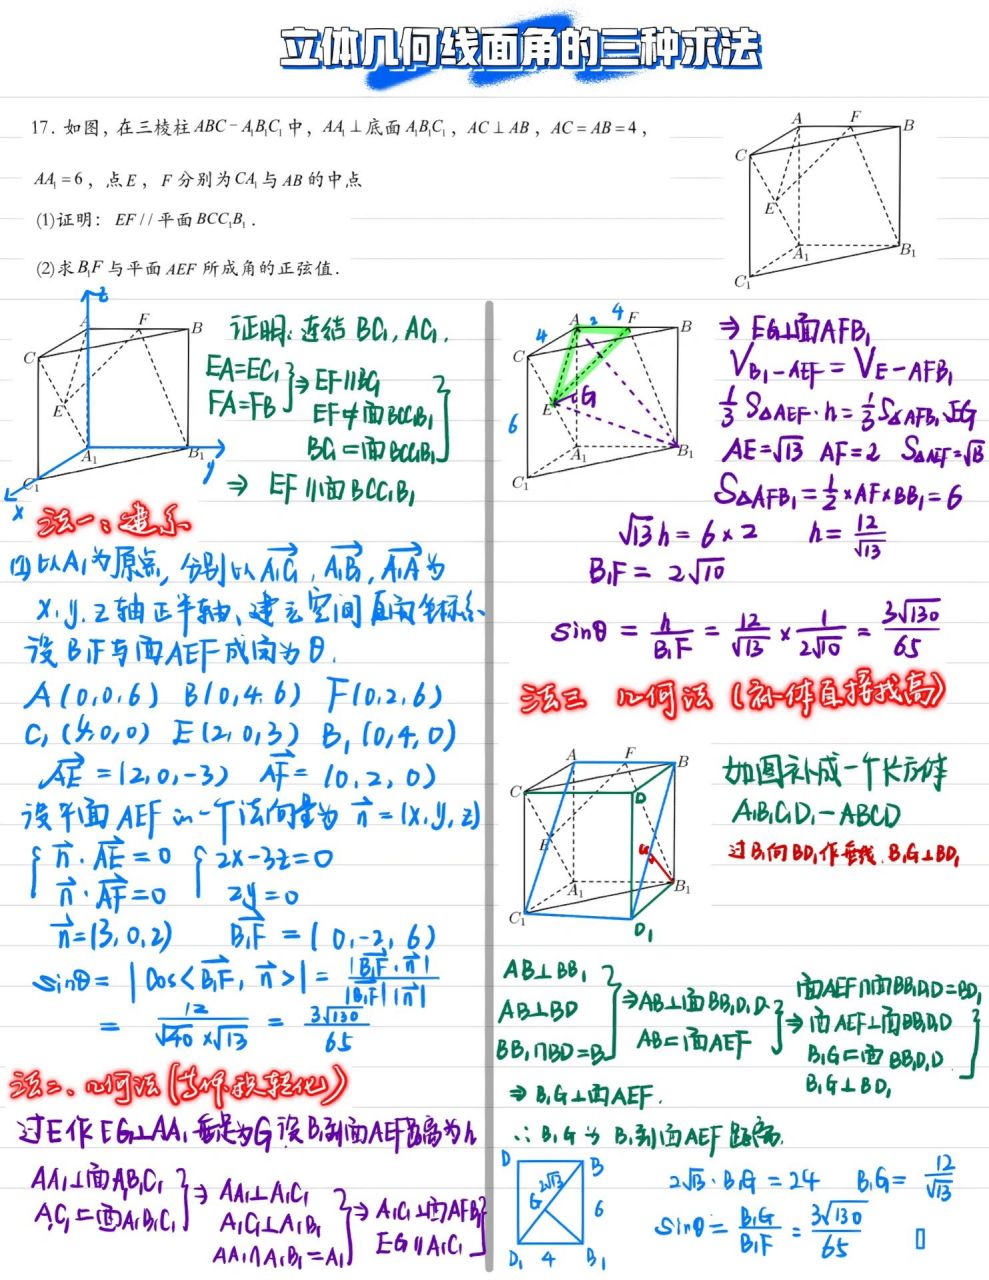 立体几何线面角的三种求法
17. 如图，在三棱柱 ABC-A₁B₁C₁ 中，AA₁⊥底面 A₁B₁C₁，AC⊥AB，AC=AB=4，
AA₁=6，点 E，F 分别为 CA₁ 与 AB 的中点
(1)证明：EF//平面 BCC₁B₁.
(2)求 B₁F 与平面 AEF 所成角的正弦值.
A F B
C
E
A₁ B₁
C₁
z
A F B
C
E
A₁ B₁
C₁ y
x
证明: 连结 BC₁, AC₁.
EA=EC₁
FA=FB
⇒ EF∥BC₁
EF⊄面BCC₁B₁
BC₁⊂面BCC₁B₁
⇒ EF∥面BCC₁B₁
法一：建系
(2)以A₁为原点, 分别以 A₁C₁, A₁B₁, A₁A为
x.y.z轴正半轴、建立空间直角坐标系
设B₁F与面AEF成角为θ.
A(0,0,6) B(0,4,6) F(0,2,6)
C₁(4,0,0) E(2,0,3) B₁(0,4,0)
AE=(2,0,-3) AF=(0,2,0)
设平面AEF的一个法向量为 n=(x,y,z)
{ n·AE=0 { 2x-3z=0
n·AF=0 2y=0
n=(3,0,2) B₁F=(0,-2,6)
sinθ=|cos<B₁F, n>|=|B₁F·n|/|B₁F||n|
=12/√40×√13=3√130/65
法二、几何法(等体积转化)
过E作EG⊥AA₁ 垂足为G 设B₁到面AEF距离为h
AA₁⊥面A₁B₁C₁
A₁C₁⊂面A₁B₁C₁
⇒ AA₁⊥A₁C₁
A₁C₁⊥A₁B₁
AA₁∩A₁B₁=A₁
⇒ A₁C₁⊥面AFB₁
EG∥A₁C₁
4
A 2 F B
4
C
G
E
6
A₁ B₁
C₁
⇒ EG⊥面AFB₁
V B₁-AEF=V E-AFB₁
1/3 S△AEF·h=1/3 S△AFB₁·EG
AE=√13 AF=2 S△AEF=√13
S△AFB₁=1/2×AF×BB₁=6
√13h=6×2 h=12/√13
B₁F=2√10
sinθ=h/B₁F=12/√13×1/2√10=3√130/65
法三 几何法(补体直接找高)
A F B
C D
E G
A₁ B₁
C₁
D₁
如图补成一个长方体
A₁B₁C₁D₁-ABCD
过B₁向BD₁作垂线. B₁G⊥BD₁
AB⊥BB₁
AB⊥BD
BB₁∩BD=B
⇒AB⊥面BB₁D₁D
AB⊂面AEF
⇒
面AEF∩面BB₁D₁D=BD₁
面AEF⊥面BB₁D₁D
B₁G⊂面BB₁D₁D
B₁G⊥BD₁
⇒B₁G⊥面AEF.
∴B₁G为B₁到面AEF距离.
D B
2√13
G 6
D₁ 4 B₁
2√13·B₁G=24 B₁G=12/√13
sinθ=B₁G/B₁F=3√130/65 □